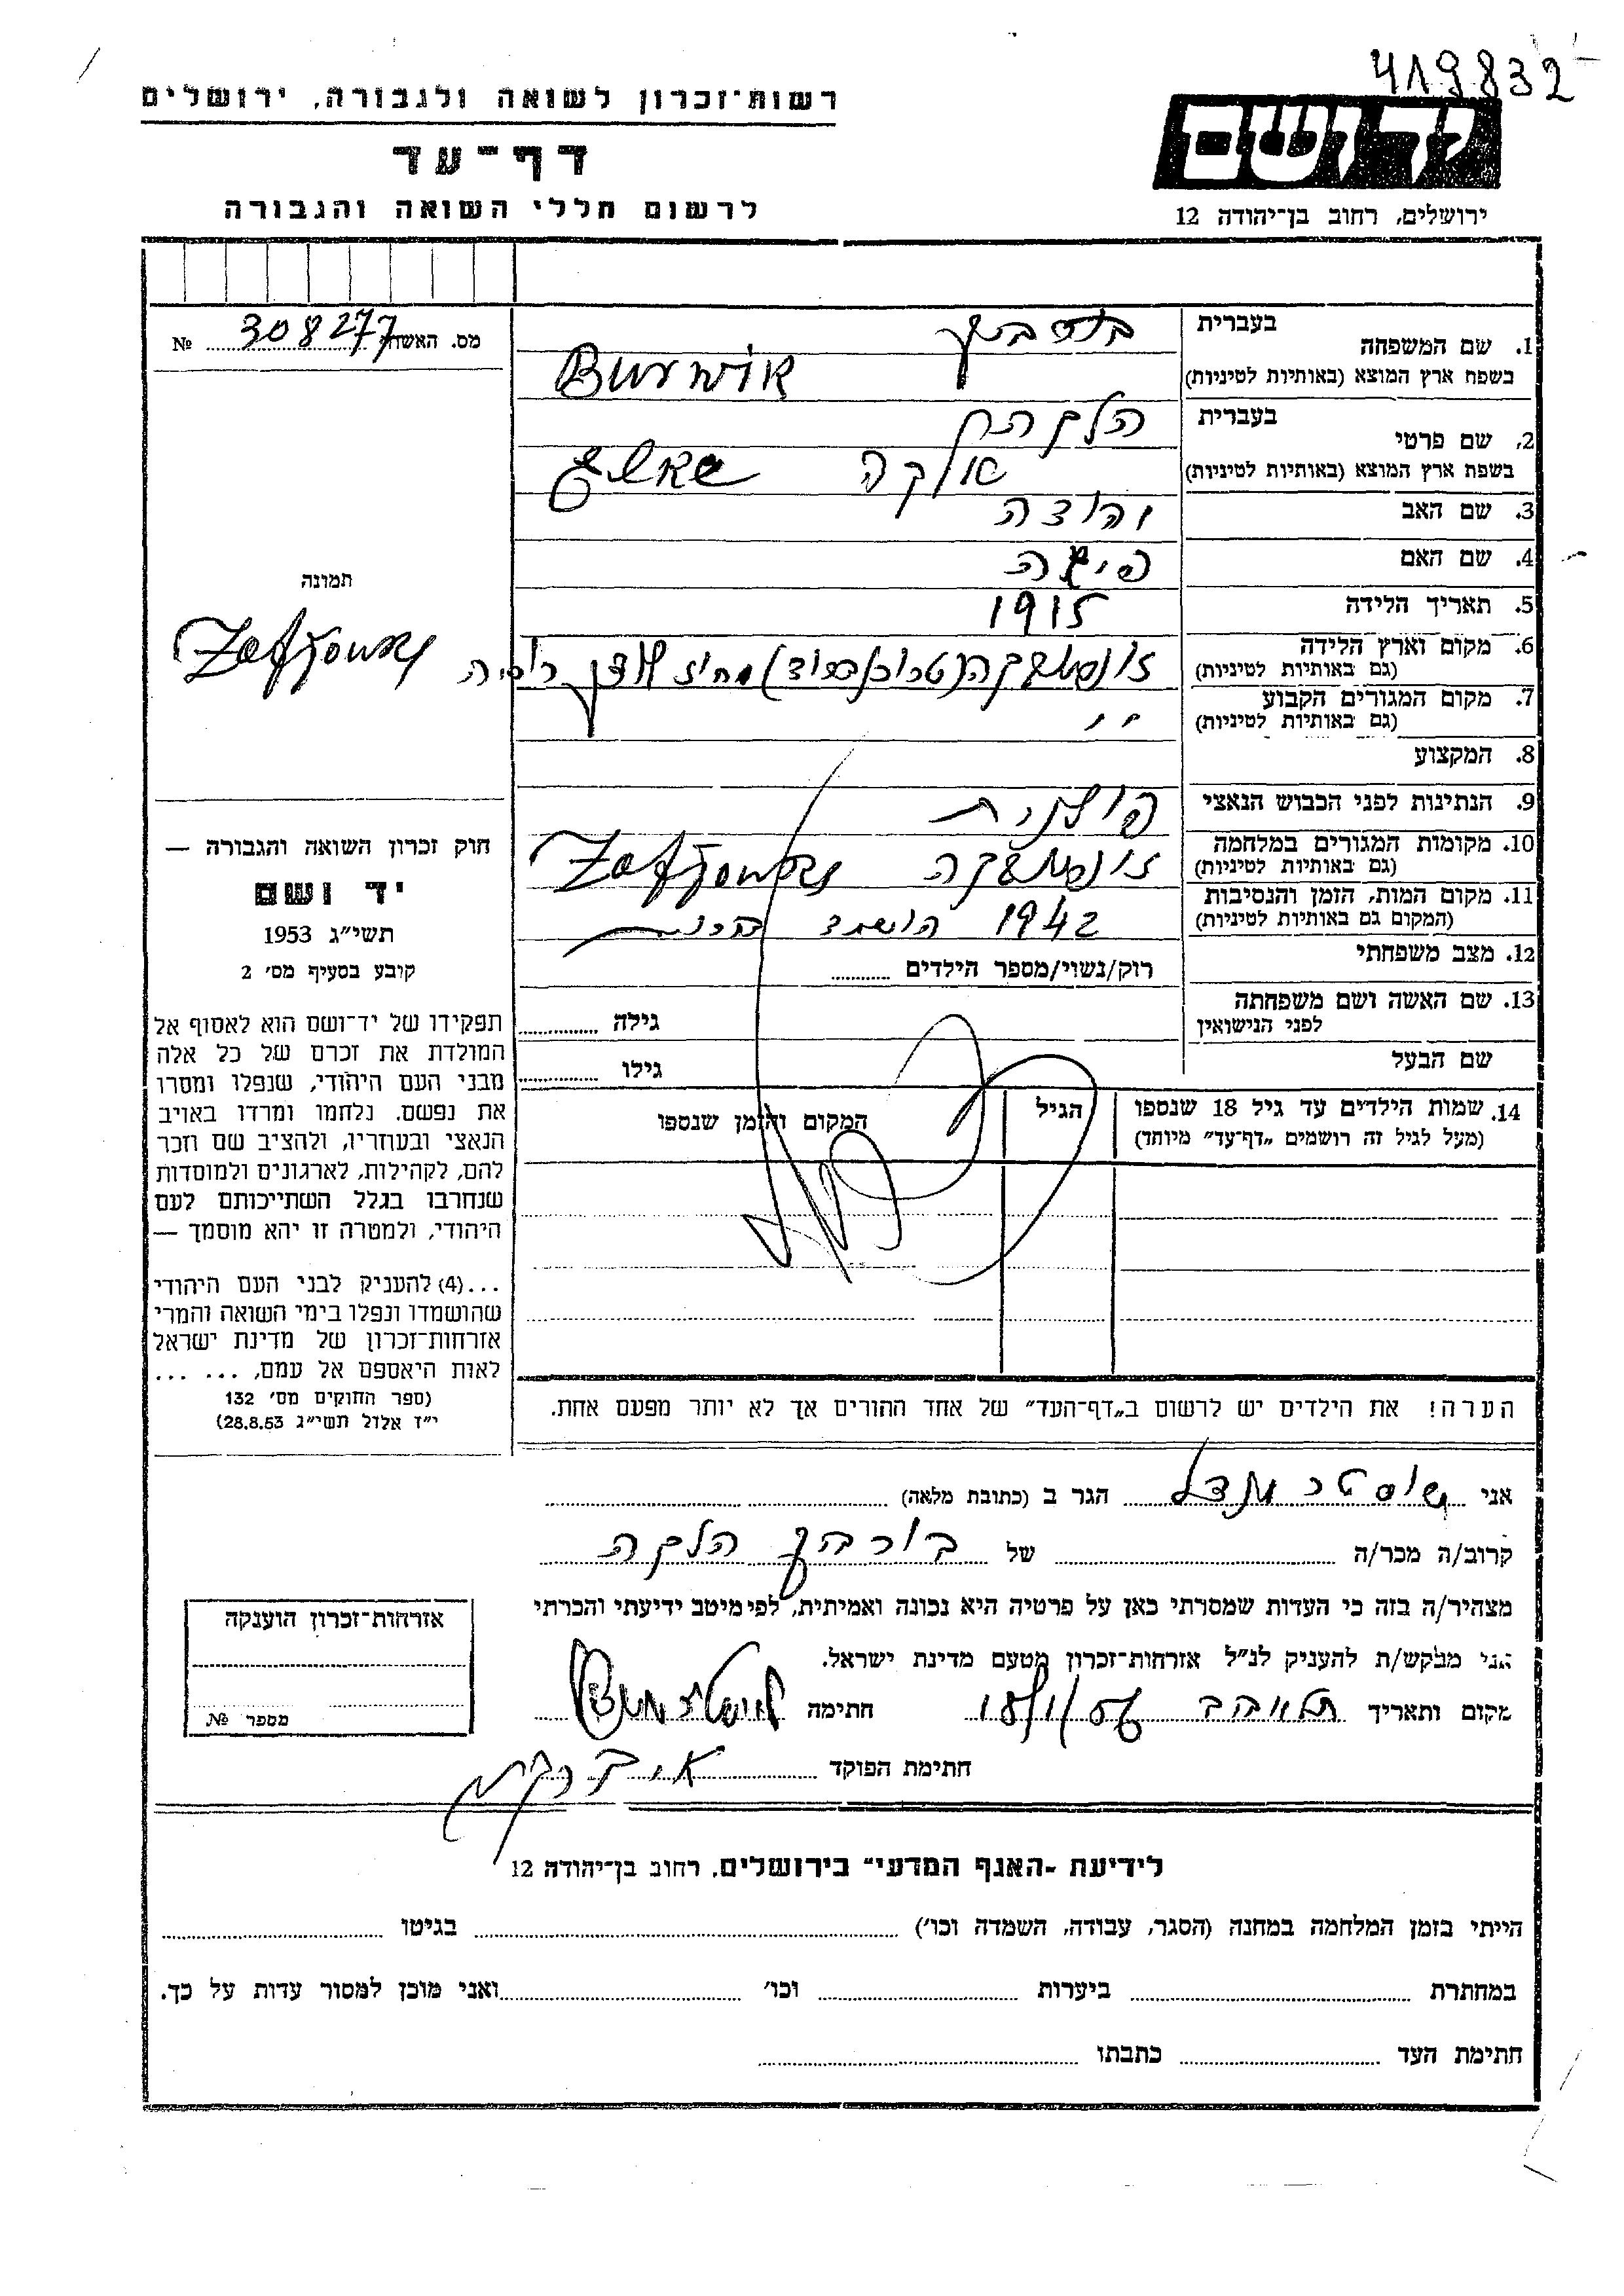 419832
רשות־זכרון לשואה ולגבורה, ירושלים
דף־עד
לרשום חללי השואה והגבורה
יד ושם
ירושלים, רחוב בן־יהודה 12
מס. האשה 308277 №
1. שם המשפחה בעברית
בשפת ארץ המוצא (באותיות לטיניות)
2. שם פרטי בעברית
בשפת ארץ המוצא (באותיות לטיניות) אלקה
3. שם האב יהודה
4. שם האם פיגה
5. תאריך הלידה 1915
6. מקום וארץ הלידה
(גם באותיות לטיניות)
7. מקום המגורים הקבוע
(גם באותיות לטיניות) ״
8. המקצוע
9. הנתינות לפני הכבוש הנאצי פולנית
10. מקומות המגורים במלחמה
(גם באותיות לטיניות)
11. מקום המות, הזמן והנסיבות 1942
(המקום גם באותיות לטיניות)
12. מצב משפחתי רוק/נשוי/מספר הילדים
13. שם האשה ושם משפחתה
לפני הנישואין גילה
שם הבעל גילו
14. שמות הילדים עד גיל 18 שנספו הגיל המקום והזמן שנספו
(מעל לגיל זה רושמים „דף־עד" מיוחד)
הערה! את הילדים יש לרשום ב„דף־העד" של אחד ההורים אך לא יותר מפעם אחת.
תמונה
חוק זכרון השואה והגבורה —
יד ושם
תשי״ג 1953
קובע בסעיף מס׳ 2
תפקידו של יד־ושם הוא לאסוף אל
המולדת את זכרם של כל אלה
מבני העם היהודי, שנפלו ומסרו
את נפשם. נלחמו ומרדו באויב
הנאצי ובעוזריו, ולהציב שם וזכר
להם, לקהילות, לארגונים ולמוסדות
שנחרבו בגלל השתייכותם לעם
היהודי, ולמטרה זו יהא מוסמך —
...(4) להעניק לבני העם היהודי
שהושמדו ונפלו בימי השואה והמרי
אזרחות־זכרון של מדינת ישראל
לאות היאספם אל עמם, ... ...
(ספר החוקים מס׳ 132
י״ד אלול תשי״ג 28.8.53)
אני שוסטר מנדל הגר ב (כתובת מלאה)
קרוב/ה מכר/ה של
מצהיר/ה בזה כי העדות שמסרתי כאן על פרטיה היא נכונה ואמיתית, לפי מיטב ידיעתי והכרתי
אני מבקש/ת להעניק לנ״ל אזרחות־זכרון מטעם מדינת ישראל.
מקום ותאריך חתימה
חתימת הפוקד
אזרחות־זכרון הוענקה
מספר №
לידיעת ״האגף המדעי״ בירושלים, רחוב בן־יהודה 12
הייתי בזמן המלחמה במחנה (הסגר, עבודה, השמדה וכו׳) בגיטו
במחתרת ביערות וכו׳ ואני מוכן למסור עדות על כך.
חתימת העד כתבתו